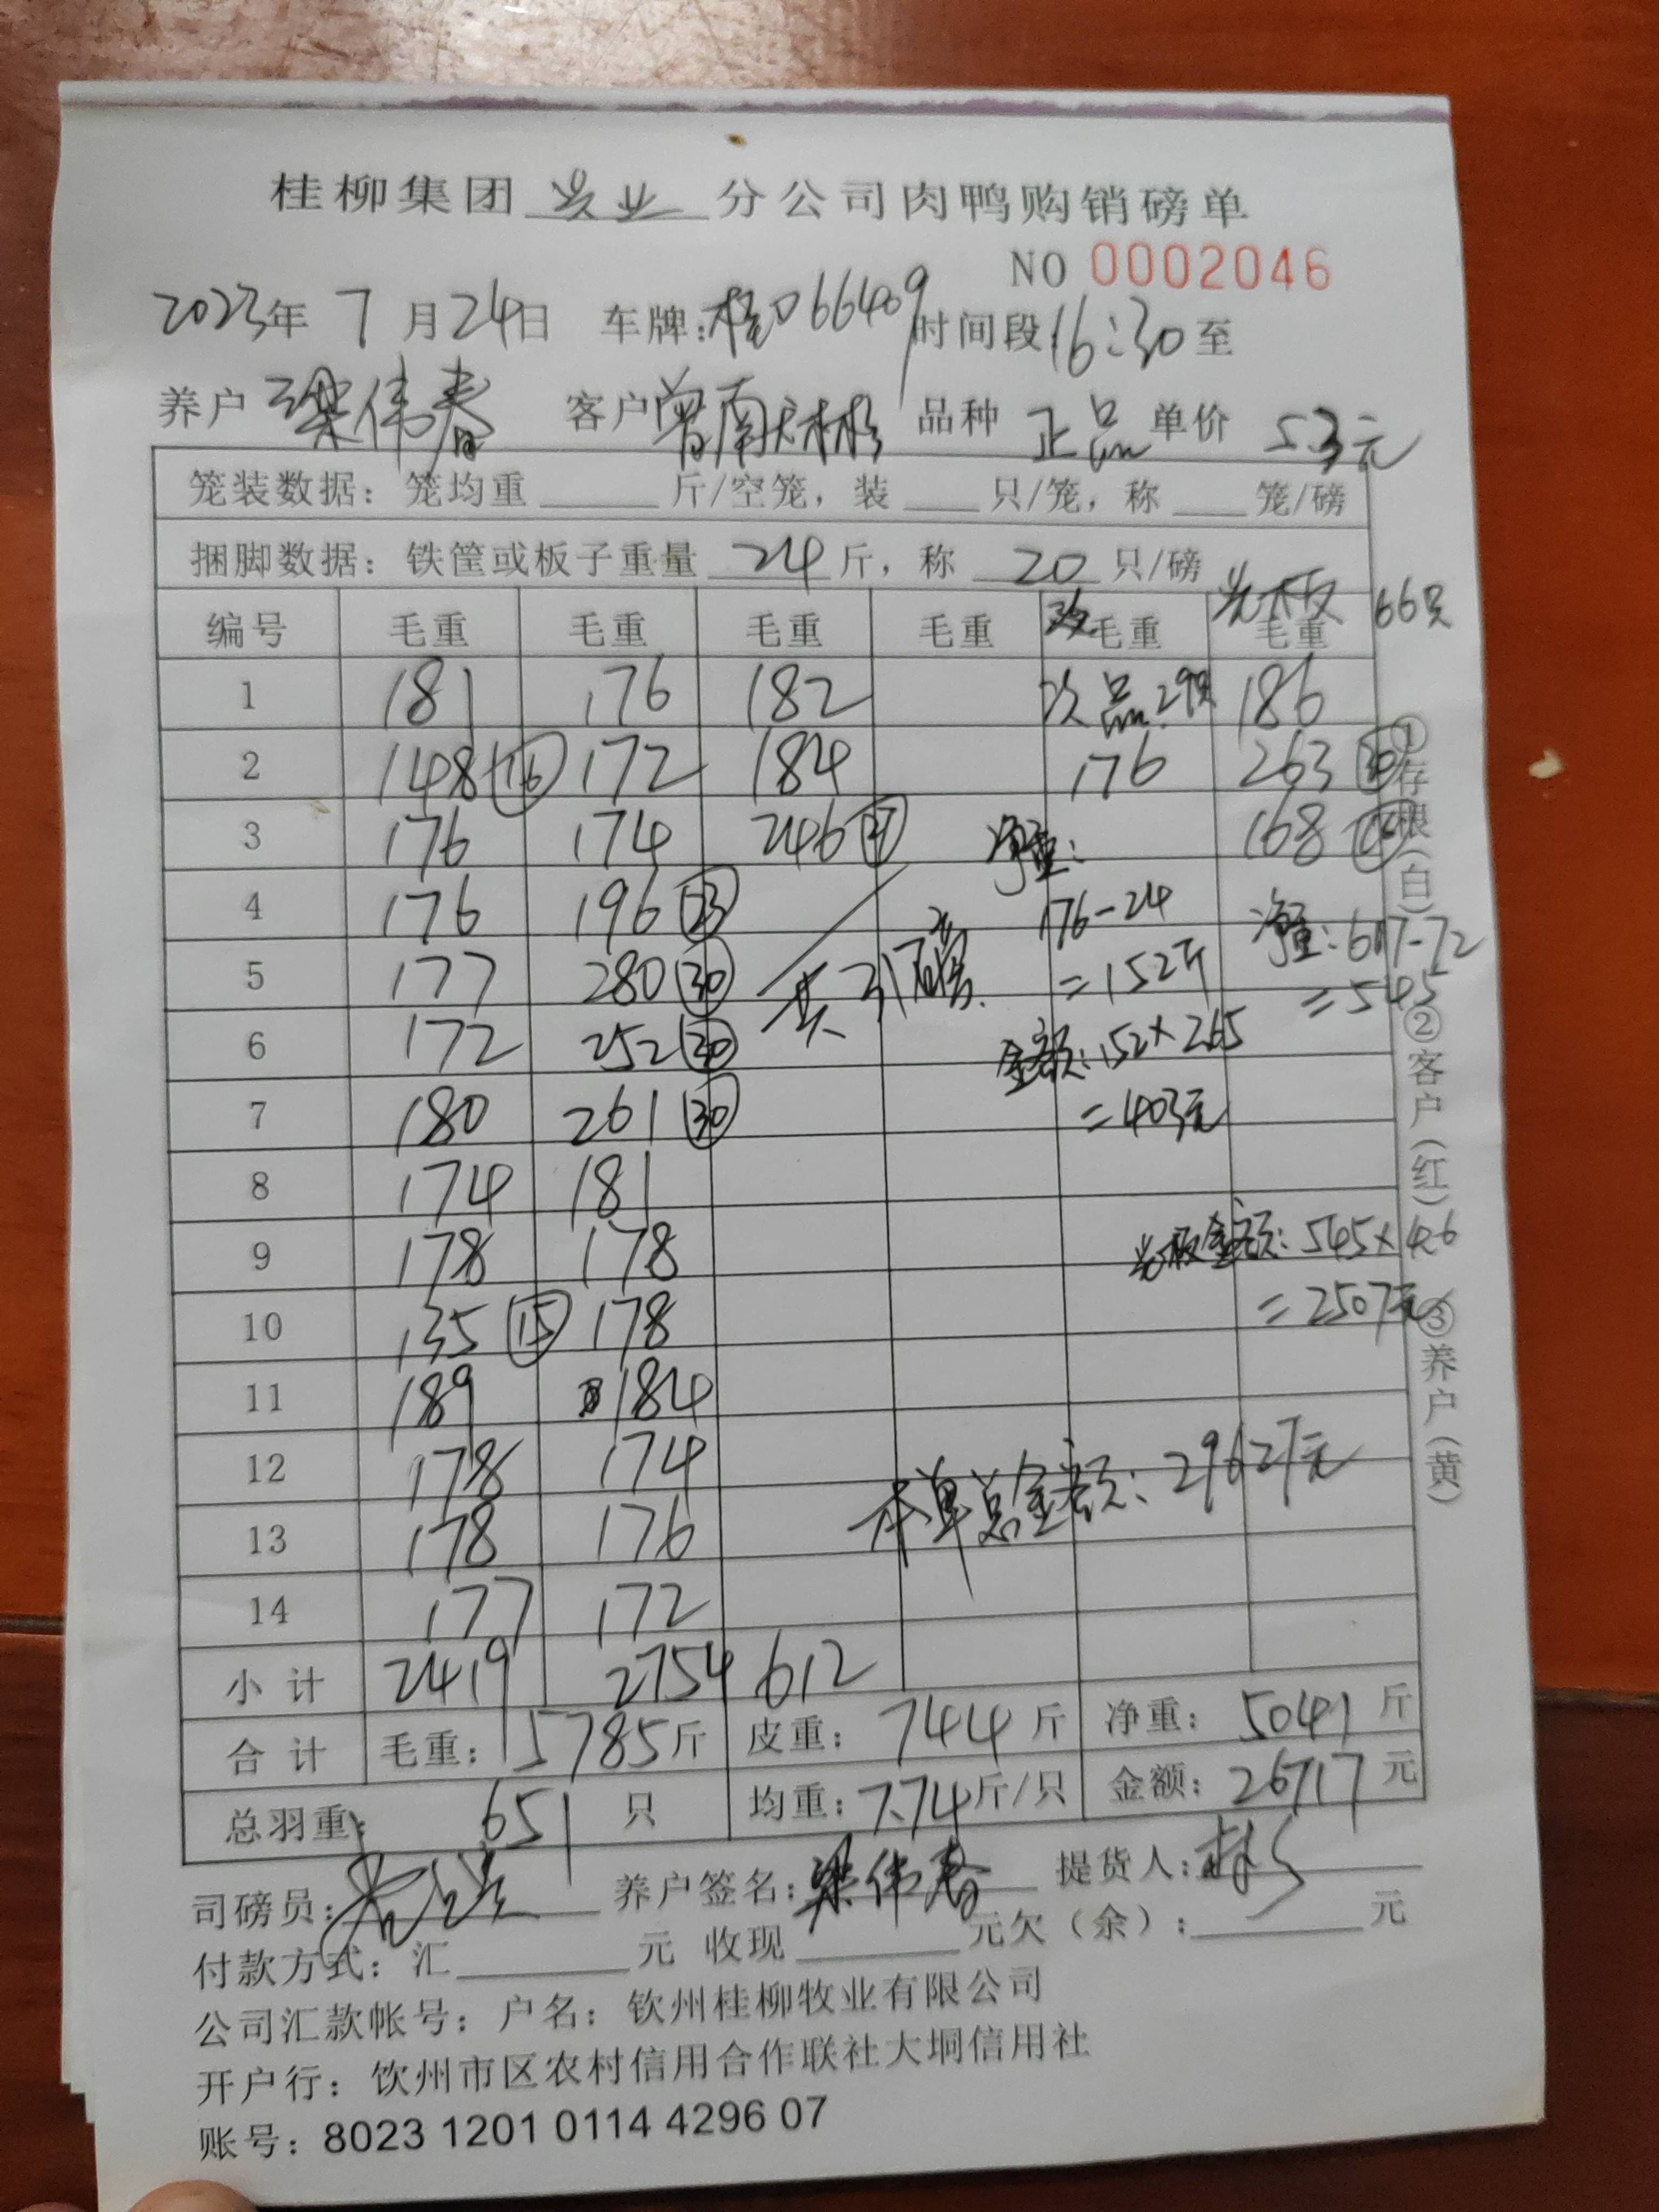 桂柳集团 兴业 分公司肉鸭购销磅单
NO 0002046
2023年 7 月 24日 车牌:桂D66409 时间段 16:30 至
养户 梁伟春 客户 曾南 林彬 品种 正品 单价 5.3元
笼装数据: 笼均重 斤/空笼, 装 只/笼, 称 笼/磅
捆脚数据: 铁筐或板子重量 24 斤, 称 20 只/磅
光板 66只
编号 毛重 毛重 毛重 毛重 毛重 毛重
1 181 176 182 次品:29只 186
2 148 16 172 184 176 263 30
3 176 174 246 27 净重: 168
4 176 196 23 176-24 净重:617-72
5 177 280 30 共31磅. =152斤 =545
6 172 252 30 金额:152×2.65
7 180 261 30 =403元
8 174 181
9 178 178 光板金额:545×4.6
10 135 15 178 =2507元
11 189 184
12 178 174 本单总金额:29627元
13 178 176
14 177 172
小计 2419 2754 612
合计 毛重: 5785斤 皮重: 744斤 净重: 5041斤
总羽重: 651 只 均重:7.74斤/只 金额: 26717元
司磅员: 养户签名:梁伟春 提货人:
付款方式: 汇 元 收现 元欠(余): 元
公司汇款帐号: 户名: 钦州桂柳牧业有限公司
开户行: 钦州市区农村信用合作联社大垌信用社
账号: 8023 1201 0114 4296 07
①存根(白) ②客户(红) ③养户(黄)